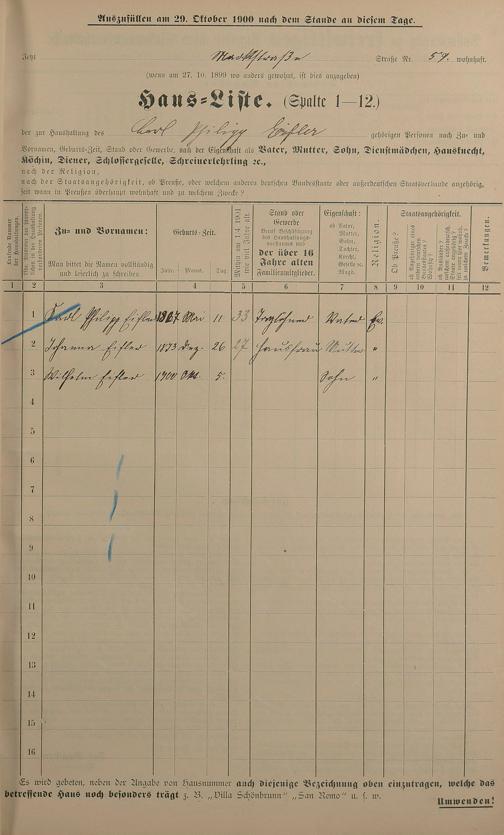 Auszufüllen am 29. Oktober 1900 nach dem Stande an diesem Tage.
Jetzt Marktstraße Straße Nr. 59. wohnhaft.
(wenn am 27. 10. 1899 wo anders gewohnt, ist dies anzugeben)
Haus-Liste. (Spalte 1—12.)
der zur Haushaltung des Carl Philipp Eifler gehörigen Personen nach Zu- und
Vornamen, Geburts-Zeit, Stand oder Gewerbe, nach der Eigenschaft als Vater, Mutter, Sohn, Dienstmädchen, Hausknecht,
Köchin, Diener, Schlossergeselle, Schreinerlehrling ec.,
nach der Religion,
nach der Staatsangehörigkeit, ob Preuße, oder welchem anderen deutschen Bundesstaate oder außerdeutschen Staatsverbande angehörig,
seit wann in Preußen überhaupt wohnhaft und zu welchem Zwecke?
Zu- und Vornamen:
Man bittet die Namen vollständig
und leserlich zu schreiben
Geburts-Zeit.
Jahr. Monat. Tag.
Stand oder
Gewerbe
der über 16
Jahre alten
Familienmitglieder.
Eigenschaft:
ob Vater,
Mutter,
Sohn,
Tochter,
Knecht,
Magd.
Religion.
Staatsangehörigkeit.
Ob Preuße?
Bemerkungen.
1 2 3 4 5 6 7 8 9 10 11 12
1 Karl Philipp Eifler 1867 Mai 11 33 Taglöhner Vater Ev.
2 Johanna Eifler 1873 Dez. 26 27 Hausfrau Mutter "
3 Wilhelm Eifler 1900 Okt. 5. Sohn "
4
5
6
7
8
9
10
11
12
13
14
15
16
Es wird gebeten, neben der Angabe von Hausnummer auch diejenige Bezeichnung oben einzutragen, welche das
betreffende Haus noch besonders trägt z. B. „Villa Schönbrunn" „San Remo" u. s. w.
Umwenden!